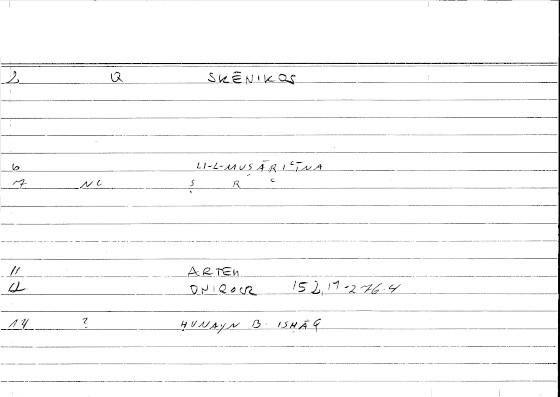 2 Q SKĒNIKOS
6 LI-L-MUṢĀRIʿĪNA
7 NC Ṣ R ʿ
11 ARTEM
12 ONIROCR 152,17-276.4
14 ? ḤUNAYN B. ISḤĀQ